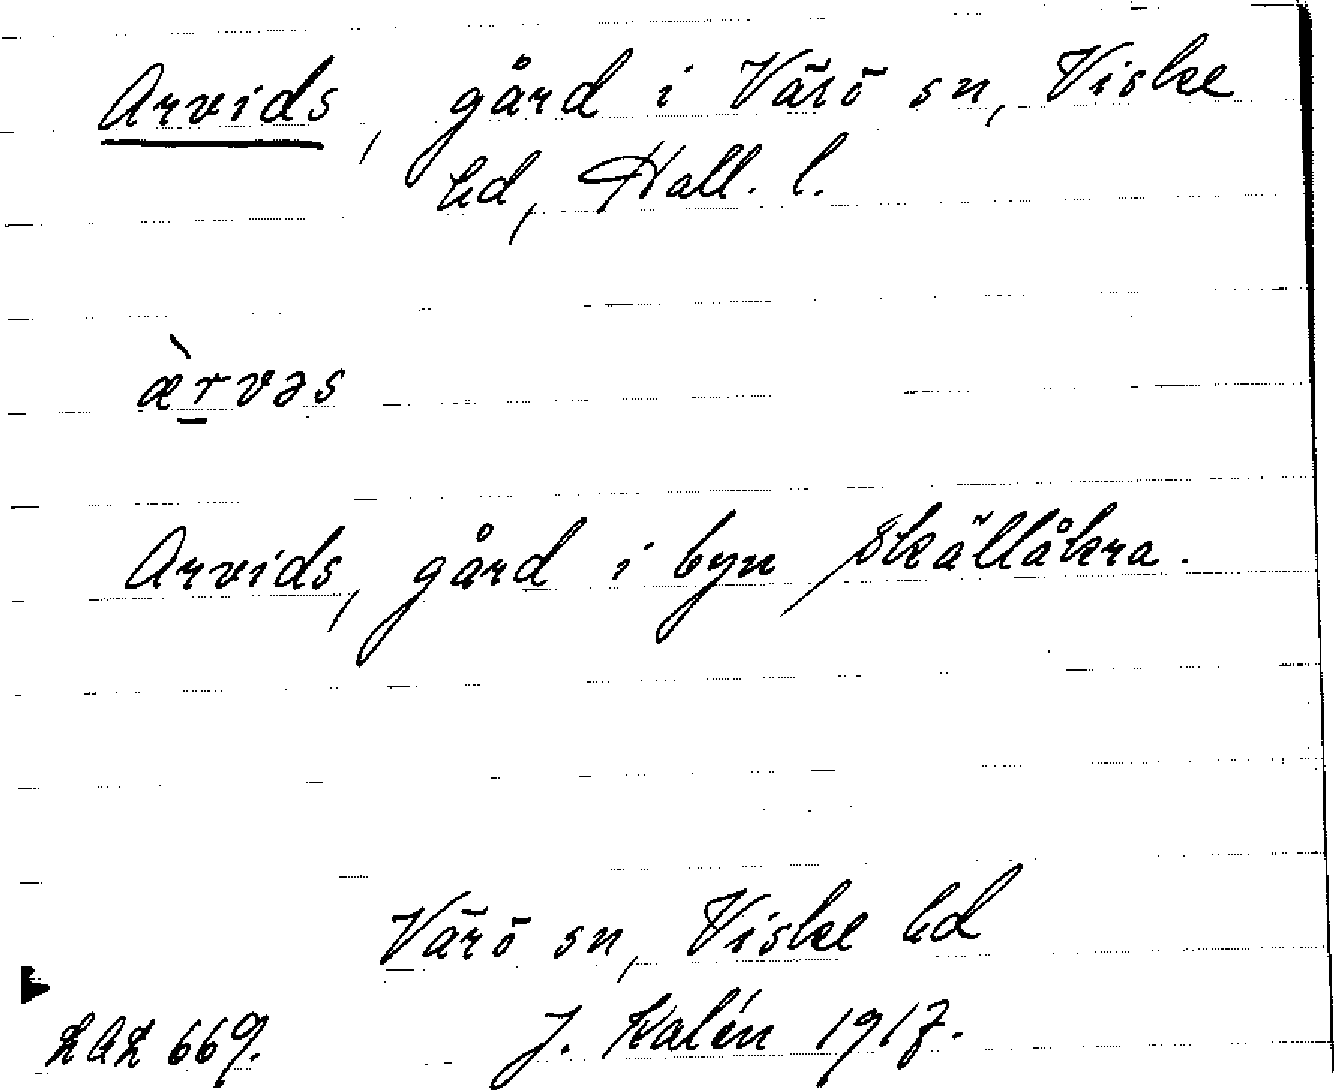 Arvids, gård i Värö sn, Viske
hd, Hall. l.
æ̀r̠vəs
Arvids, gård i byn Skällåkra.
Värö sn, Viske hd
LAL 669. J. Kalén 1917.